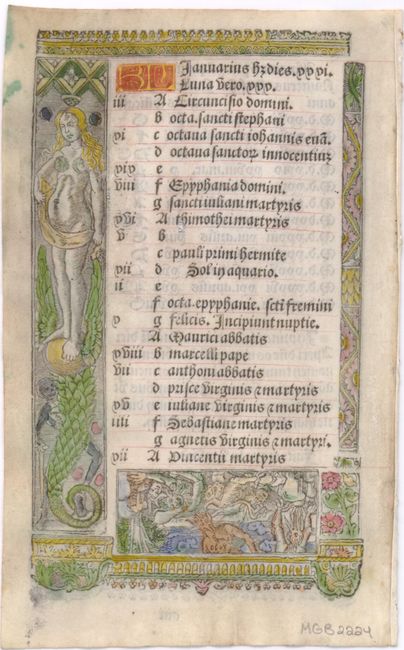 KL Januarius hz dies. xxxi.
Luna vero. xxx.
iii A Circuncisio domini.
b octa. sancti stephani
xi c octava sancti iohannis euā.
d octava sanctoꝝ innocentiuꝫ
xix e
viii f Epyphania domini.
g sancti iuliani martyris
xvi A thimothei martyris
v b
c pauli primi hermite
xiii d Sol in aquario.
ii e
f octa. epyphanie. scti fremini
x g felicis. Incipiunt nuptie.
A Maurici abbatis
xviii b marcelli pape
vii c anthoni abbatis
d prisce virginis ⁊ martyris
xv e iuliane virginis ⁊ martyris
iiii f Sebastiane martyris
g agnetis virginis ⁊ martyri.
xii A Vincentii martyris
MGB2224